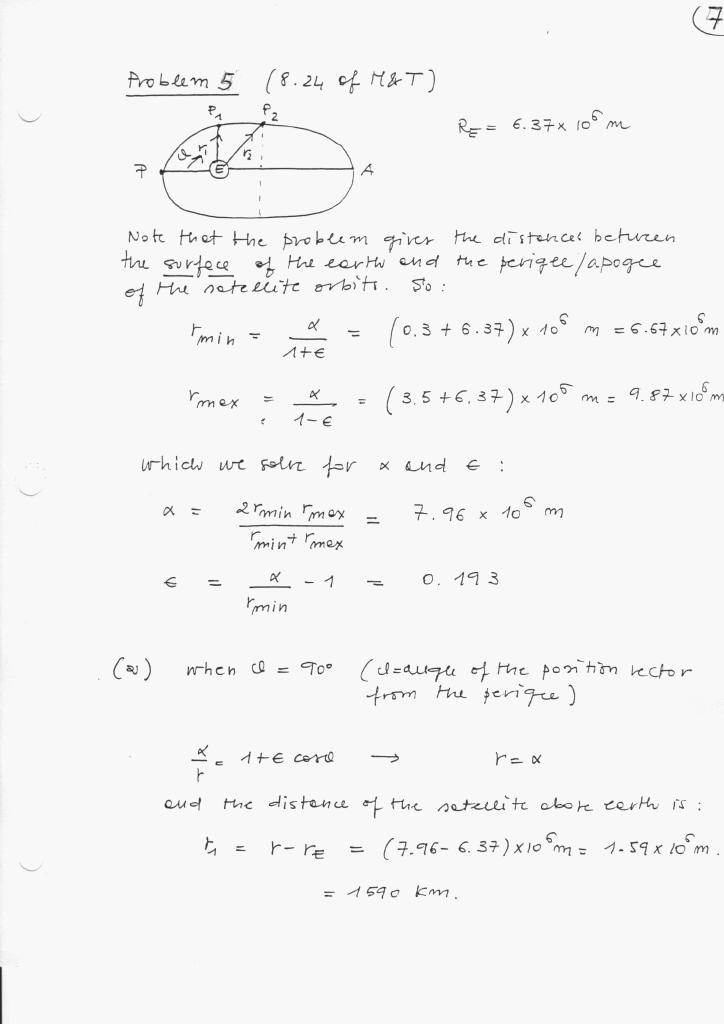 7
Problem 5 (8.24 of M&T)
P₁ P₂
R_E = 6.37 x 10⁶ m
θ r₁ r₂
P E A
Note that the problem gives the distances between
the surface of the earth and the perigee/apogee
of the satellite orbits. So:
r_min = α/(1+ϵ) = (0.3 + 6.37) x 10⁶ m = 6.67 x 10⁶ m
r_max = α/(1-ϵ) = (3.5 + 6.37) x 10⁶ m = 9.87 x 10⁶ m
which we solve for α and ϵ :
α = 2 r_min r_max / (r_min + r_max) = 7.96 x 10⁶ m
ϵ = α/r_min - 1 = 0.193
(a) when θ = 90° (θ=angle of the position vector
from the perigee)
α/r = 1+ϵ cosθ → r = α
and the distance of the satellite above earth is :
r₁ = r - r_E = (7.96 - 6.37) x 10⁶ m = 1.59 x 10⁶ m.
= 1590 km.